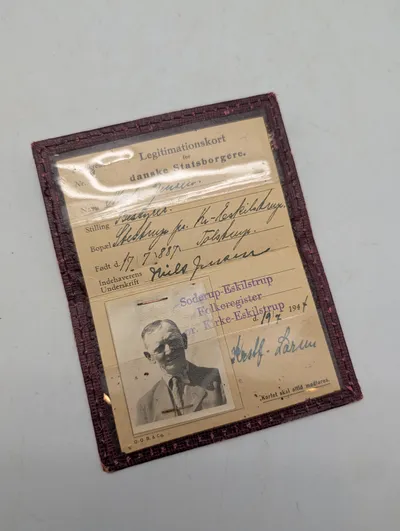 Legitimationskort
for
danske Statsborgere.
Nr.
Navn
Stilling
Bopæl Stestrup pr. Kr-Eskilstrup.
Født d. 17. 7. 1887. Tolstrup.
Indehaverens
Underskrift Niels Jensen
Soderup-Eskilstrup
Folkeregister
pr. Kirke-Eskilstrup
d. 19/7 1944
Kortet skal altid medføres.